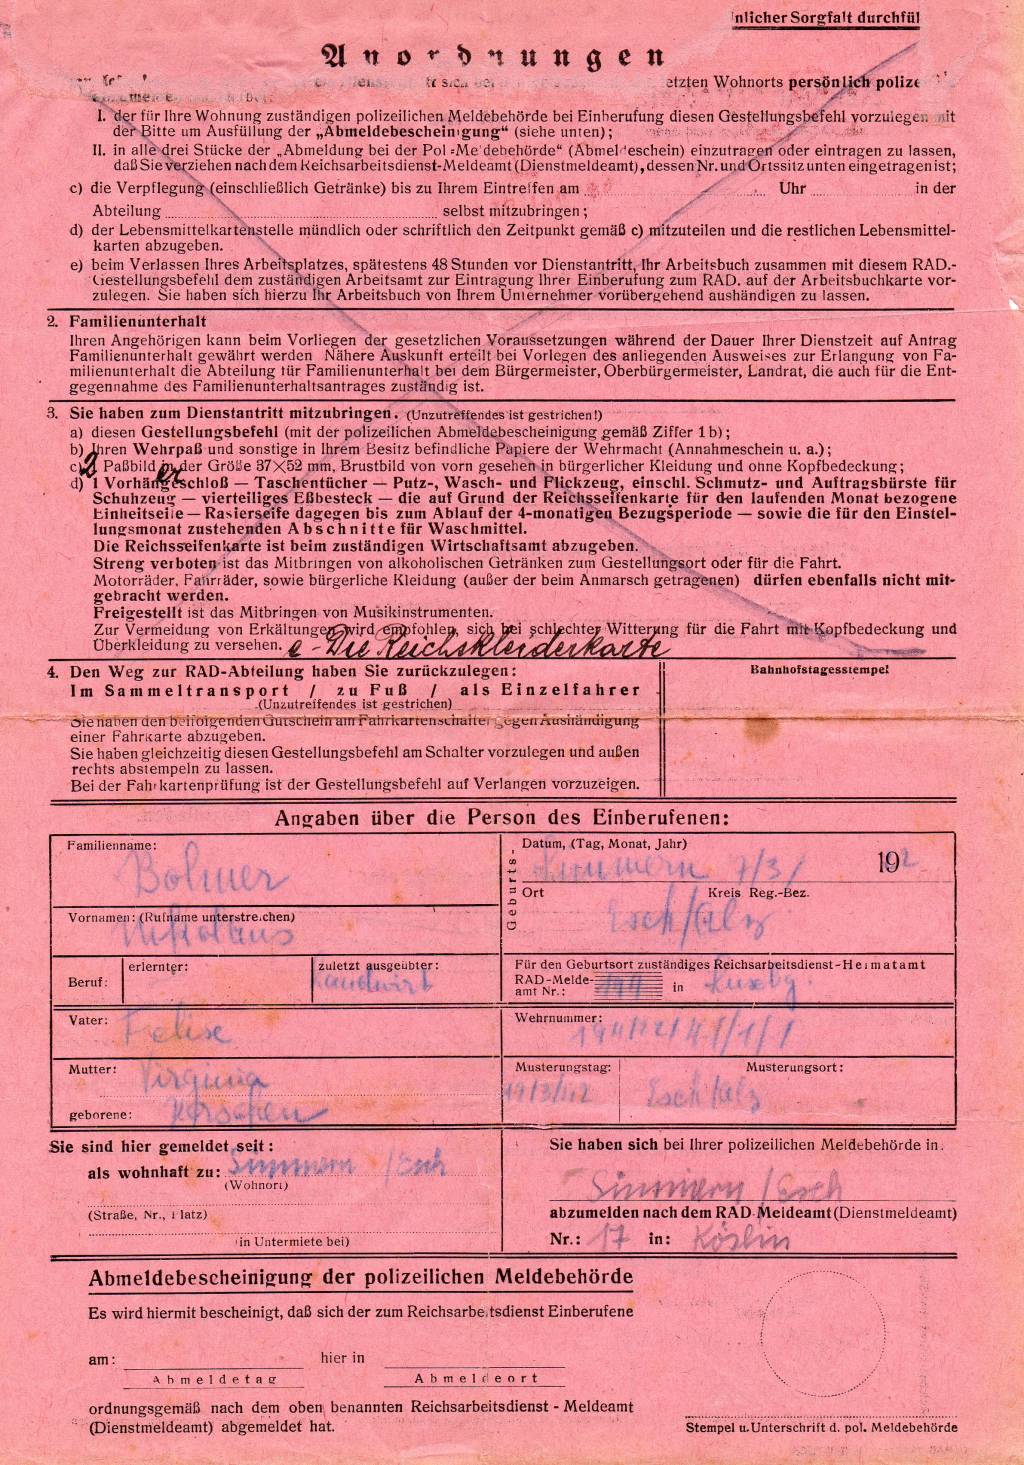 nlicher Sorgfalt durchfül
Anordnungen
sich bei etzten Wohnorts persönlich polize
I. der für Ihre Wohnung zuständigen polizeilichen Meldebehörde bei Einberufung diesen Gestellungsbefehl vorzulegen mit
der Bitte um Ausfüllung der „Abmeldebescheinigung“ (siehe unten);
II. in alle drei Stücke der „Abmeldung bei der Pol.-Meldebehörde“ (Abmeldeschein) einzutragen oder eintragen zu lassen,
daß Sie verziehen nach dem Reichsarbeitsdienst-Meldeamt (Dienstmeldeamt), dessen Nr. und Ortssitz unten eingetragen ist;
c) die Verpflegung (einschließlich Getränke) bis zu Ihrem Eintreffen am Uhr in der
Abteilung selbst mitzubringen;
d) der Lebensmittelkartenstelle mündlich oder schriftlich den Zeitpunkt gemäß c) mitzuteilen und die restlichen Lebensmittel-
karten abzugeben.
e) beim Verlassen Ihres Arbeitsplatzes, spätestens 48 Stunden vor Dienstantritt, Ihr Arbeitsbuch zusammen mit diesem RAD.-
Gestellungsbefehl dem zuständigen Arbeitsamt zur Eintragung Ihrer Einberufung zum RAD. auf der Arbeitsbuchkarte vor-
zulegen. Sie haben sich hierzu Ihr Arbeitsbuch von Ihrem Unternehmer vorübergehend aushändigen zu lassen.
2. Familienunterhalt
Ihren Angehörigen kann beim Vorliegen der gesetzlichen Voraussetzungen während der Dauer Ihrer Dienstzeit auf Antrag
Familienunterhalt gewährt werden Nähere Auskunft erteilt bei Vorlegen des anliegenden Ausweises zur Erlangung von Fa-
milienunterhalt die Abteilung für Familienunterhalt bei dem Bürgermeister, Oberbürgermeister, Landrat, die auch für die Ent-
gegennahme des Familienunterhaltsantrages zuständig ist.
3. Sie haben zum Dienstantritt mitzubringen. (Unzutreffendes ist gestrichen!)
a) diesen Gestellungsbefehl (mit der polizeilichen Abmeldebescheinigung gemäß Ziffer 1 b);
b) Ihren Wehrpaß und sonstige in Ihrem Besitz befindliche Papiere der Wehrmacht (Annahmeschein u. a.);
c) 2 Paßbilder in der Größe 37×52 mm, Brustbild von vorn gesehen in bürgerlicher Kleidung und ohne Kopfbedeckung;
d) 1 Vorhängeschloß — Taschentücher — Putz-, Wasch- und Flickzeug, einschl. Schmutz- und Auftragsbürste für
Schuhzeug — vierteiliges Eßbesteck — die auf Grund der Reichsseifenkarte für den laufenden Monat bezogene
Einheitseife — Rasierseife dagegen bis zum Ablauf der 4-monatigen Bezugsperiode — sowie die für den Einstel-
lungsmonat zustehenden Abschnitte für Waschmittel.
Die Reichsseifenkarte ist beim zuständigen Wirtschaftsamt abzugeben.
Streng verboten ist das Mitbringen von alkoholischen Getränken zum Gestellungsort oder für die Fahrt.
Motorräder, Fahrräder, sowie bürgerliche Kleidung (außer der beim Anmarsch getragenen) dürfen ebenfalls nicht mit-
gebracht werden.
Freigestellt ist das Mitbringen von Musikinstrumenten.
Zur Vermeidung von Erkältungen wird empfohlen, sich bei schlechter Witterung für die Fahrt mit Kopfbedeckung und
Überkleidung zu versehen. e - Die Reichskleiderkarte
4. Den Weg zur RAD-Abteilung haben Sie zurückzulegen:
Im Sammeltransport / zu Fuß / als Einzelfahrer
(Unzutreffendes ist gestrichen)
Sie haben den beifolgenden Gutschein am Fahrkartenschalter gegen Aushändigung
einer Fahrkarte abzugeben.
Sie haben gleichzeitig diesen Gestellungsbefehl am Schalter vorzulegen und außen
rechts abstempeln zu lassen.
Bei der Fahrkartenprüfung ist der Gestellungsbefehl auf Verlangen vorzuzeigen.
Bahnhofstagesstempel
Angaben über die Person des Einberufenen:
Familienname:
Bolmer
Vornamen: (Rufname unterstreichen)
Nikolaus
Beruf: erlernter: zuletzt ausgeübter:
Landwirt
Vater:
Felise
Mutter:
Virginia
geborene:
Geburts-
Datum, (Tag, Monat, Jahr)
Simmern 7/3/ 19
Ort Kreis Reg.-Bez.
Esch/Alz
Für den Geburtsort zuständiges Reichsarbeitsdienst-Heimatamt
RAD-Melde-
amt Nr.: in
Wehrnummer:
Musterungstag: Musterungsort:
19/3/42 Esch/Alz
Sie sind hier gemeldet seit:
als wohnhaft zu: Simmern /Esch
(Wohnort)
(Straße, Nr., Platz)
(in Untermiete bei)
Sie haben sich bei Ihrer polizeilichen Meldebehörde in.
Simmern /Esch
abzumelden nach dem RAD-Meldeamt (Dienstmeldeamt)
Nr.: 17 in: Köslin
Abmeldebescheinigung der polizeilichen Meldebehörde
Es wird hiermit bescheinigt, daß sich der zum Reichsarbeitsdienst Einberufene
am: hier in
Abmeldetag Abmeldeort
ordnungsgemäß nach dem oben benannten Reichsarbeitsdienst-Meldeamt
(Dienstmeldeamt) abgemeldet hat.
Stempel u. Unterschrift d. pol. Meldebehörde